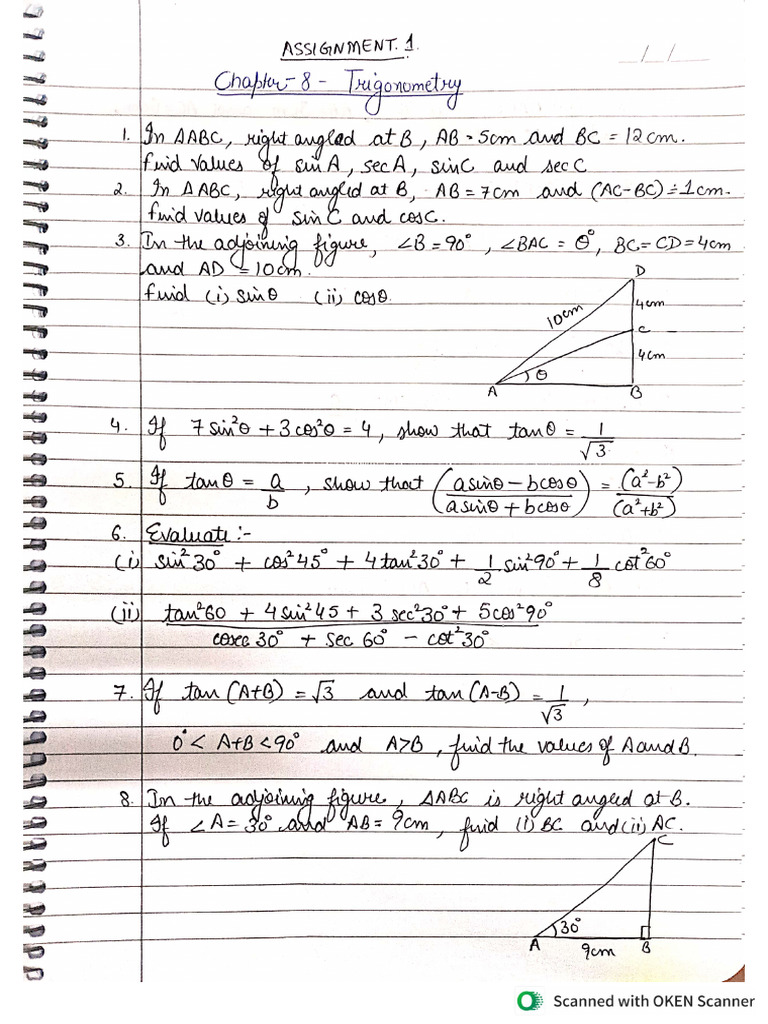 ASSIGNMENT. 1.
/ /
Chapter-8 - Trigonometry
1. In ΔABC, right angled at B, AB = 5cm and BC = 12cm.
find values of sinA, secA, sinC and secC
2. In ΔABC, right angled at B, AB = 7cm and (AC-BC) = 1cm.
find values of sinC and cosC.
3. In the adjoining figure, ∠B = 90°, ∠BAC = θ°, BC = CD = 4cm
and AD = 10cm.
find (i) sinθ (ii) cosθ.
D
4cm
10cm
C
4cm
θ
A B
4. If 7sin²θ + 3cos²θ = 4, show that tanθ = 1/√3
5. If tanθ = a/b, show that (asinθ - bcosθ / asinθ + bcosθ) = (a²-b²)/(a²+b²)
6. Evaluate :-
(i) sin²30° + cos²45° + 4tan²30° + 1/2 sin²90° + 1/8 cot²60°
(ii) tan²60 + 4sin²45 + 3 sec²30° + 5cos²90°
cosec 30° + sec 60° - cot²30°
7. If tan(A+B) = √3 and tan(A-B) = 1/√3,
0° < A+B < 90° and A>B, find the values of A and B.
8. In the adjoining figure, ΔABC is right angled at B.
If ∠A = 30° and AB = 9cm, find (i) BC and (ii) AC.
C
30°
A 9cm B
Scanned with OKEN Scanner